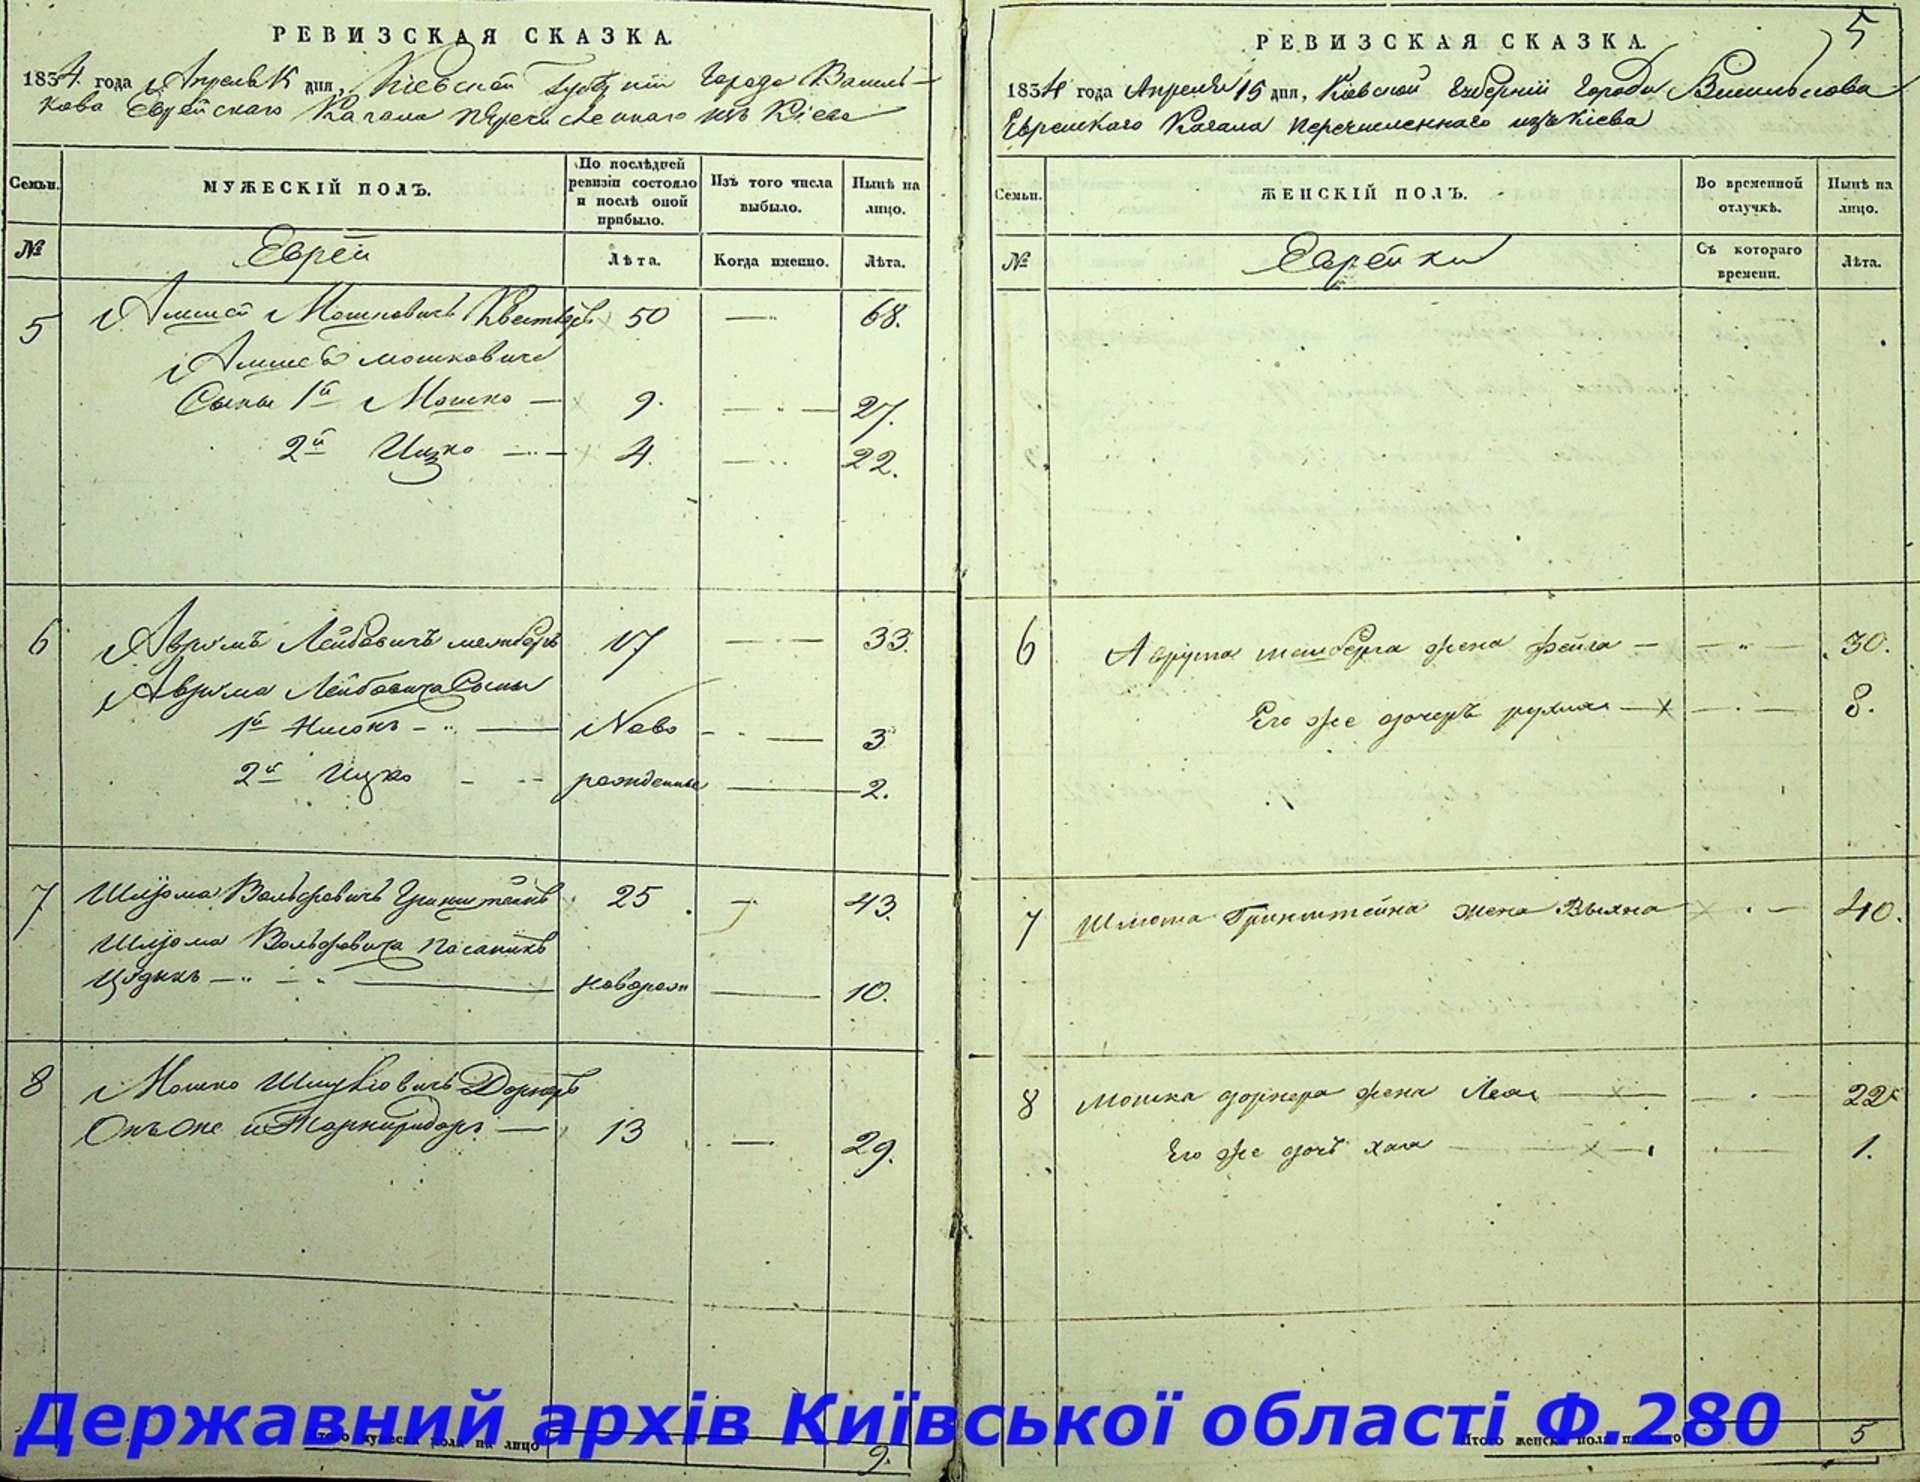 РЕВИЗСКАЯ СКАЗКА.
1834 года Апреля дня, Кіевской Губерніи Города Василь-
кова Еврейскаго Кагала перечисленнаго изъ Кіева
Семьи. МУЖЕСКІЙ ПОЛЪ. По послѣдней ревизіи состояло и послѣ оной прибыло. Изъ того числа выбыло. Нынѣ на лицо.
№ Еврей Лѣта. Когда именно. Лѣта.
5 Мошковичъ 50 — 68.
Мошковича
Сыны 1й Мошко — 9. — 27.
2й Ицко — 4. — 22.
6 Аврумъ Лейбовичъ 17 — 33.
Аврума Лейбовича Сыны
1й Нисонъ — Ново — 3
2й Ицко рожденные — 2.
7 Шлёма Вольфовичъ Гринштейнъ 25 — 43.
Шлёма Вольфовича Пасынокъ
новорож — 10.
8 Мошко Шмулёвичъ Дорнеръ
Онъ же и — 13 — 29.
того мужеска пола на лицо 9.
5
РЕВИЗСКАЯ СКАЗКА.
1834 года Апреля 15 дня, Кіевской Губерній Города Василькова
Еврейскаго Кагала перечисленнаго изъ Кіева
Семьи. ЖЕНСКІЙ ПОЛЪ. Во временной отлучкѣ. Нынѣ на лицо.
№ Еврейки Съ котораго времени. Лѣта.
6 Аврума жена Фейга — 30.
Его же дочеръ — 8.
7 Шлома Гринштейна жена — 40.
8 Мошка дорнера жена Лея — 22
Его же дочъ хая — 1.
Итого женска пола на лицо 5
Державний архів Київської області Ф.280